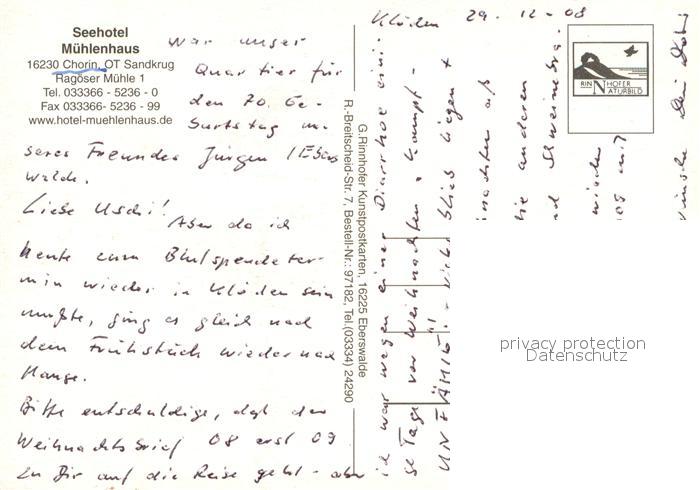 Seehotel
Mühlenhaus
16230 Chorin, OT Sandkrug
Ragöser Mühle 1
Tel. 033366 - 5236 - 0
Fax 033366- 5236 - 99
www.hotel-muehlenhaus.de
war unser
Quartier für
den 70. Ge-
burtstag un-
seres Freundes Jürgen / Ebers
walde.
Liebe Uschi!
Aber da ich
heute zum Blutspendeter-
min wieder in Klöden sein
mußte, ging es gleich nach
dem Frühstück wieder nach
Hause.
Bitte entschuldige, daß der
Weihnachtsbrief 08 erst 09
zu Dir auf die Reise geht - aber
G. Rinnhofer Kunstpostkarten, 16225 Eberswalde
R.-Breitscheid-Str. 7, Bestell-Nr.: 97182, Tel.(03334) 24290
Klöden 29. 12 - 08
ich war wegen einer Diarrhoe eini-
ge Tage vor Weihnachten kampf-
UNFÄHIG! - vieles blieb liegen +
die anderen
wieder
wünsche Dein
RINNHOFER
NATURBILD
privacy protection
Datenschutz